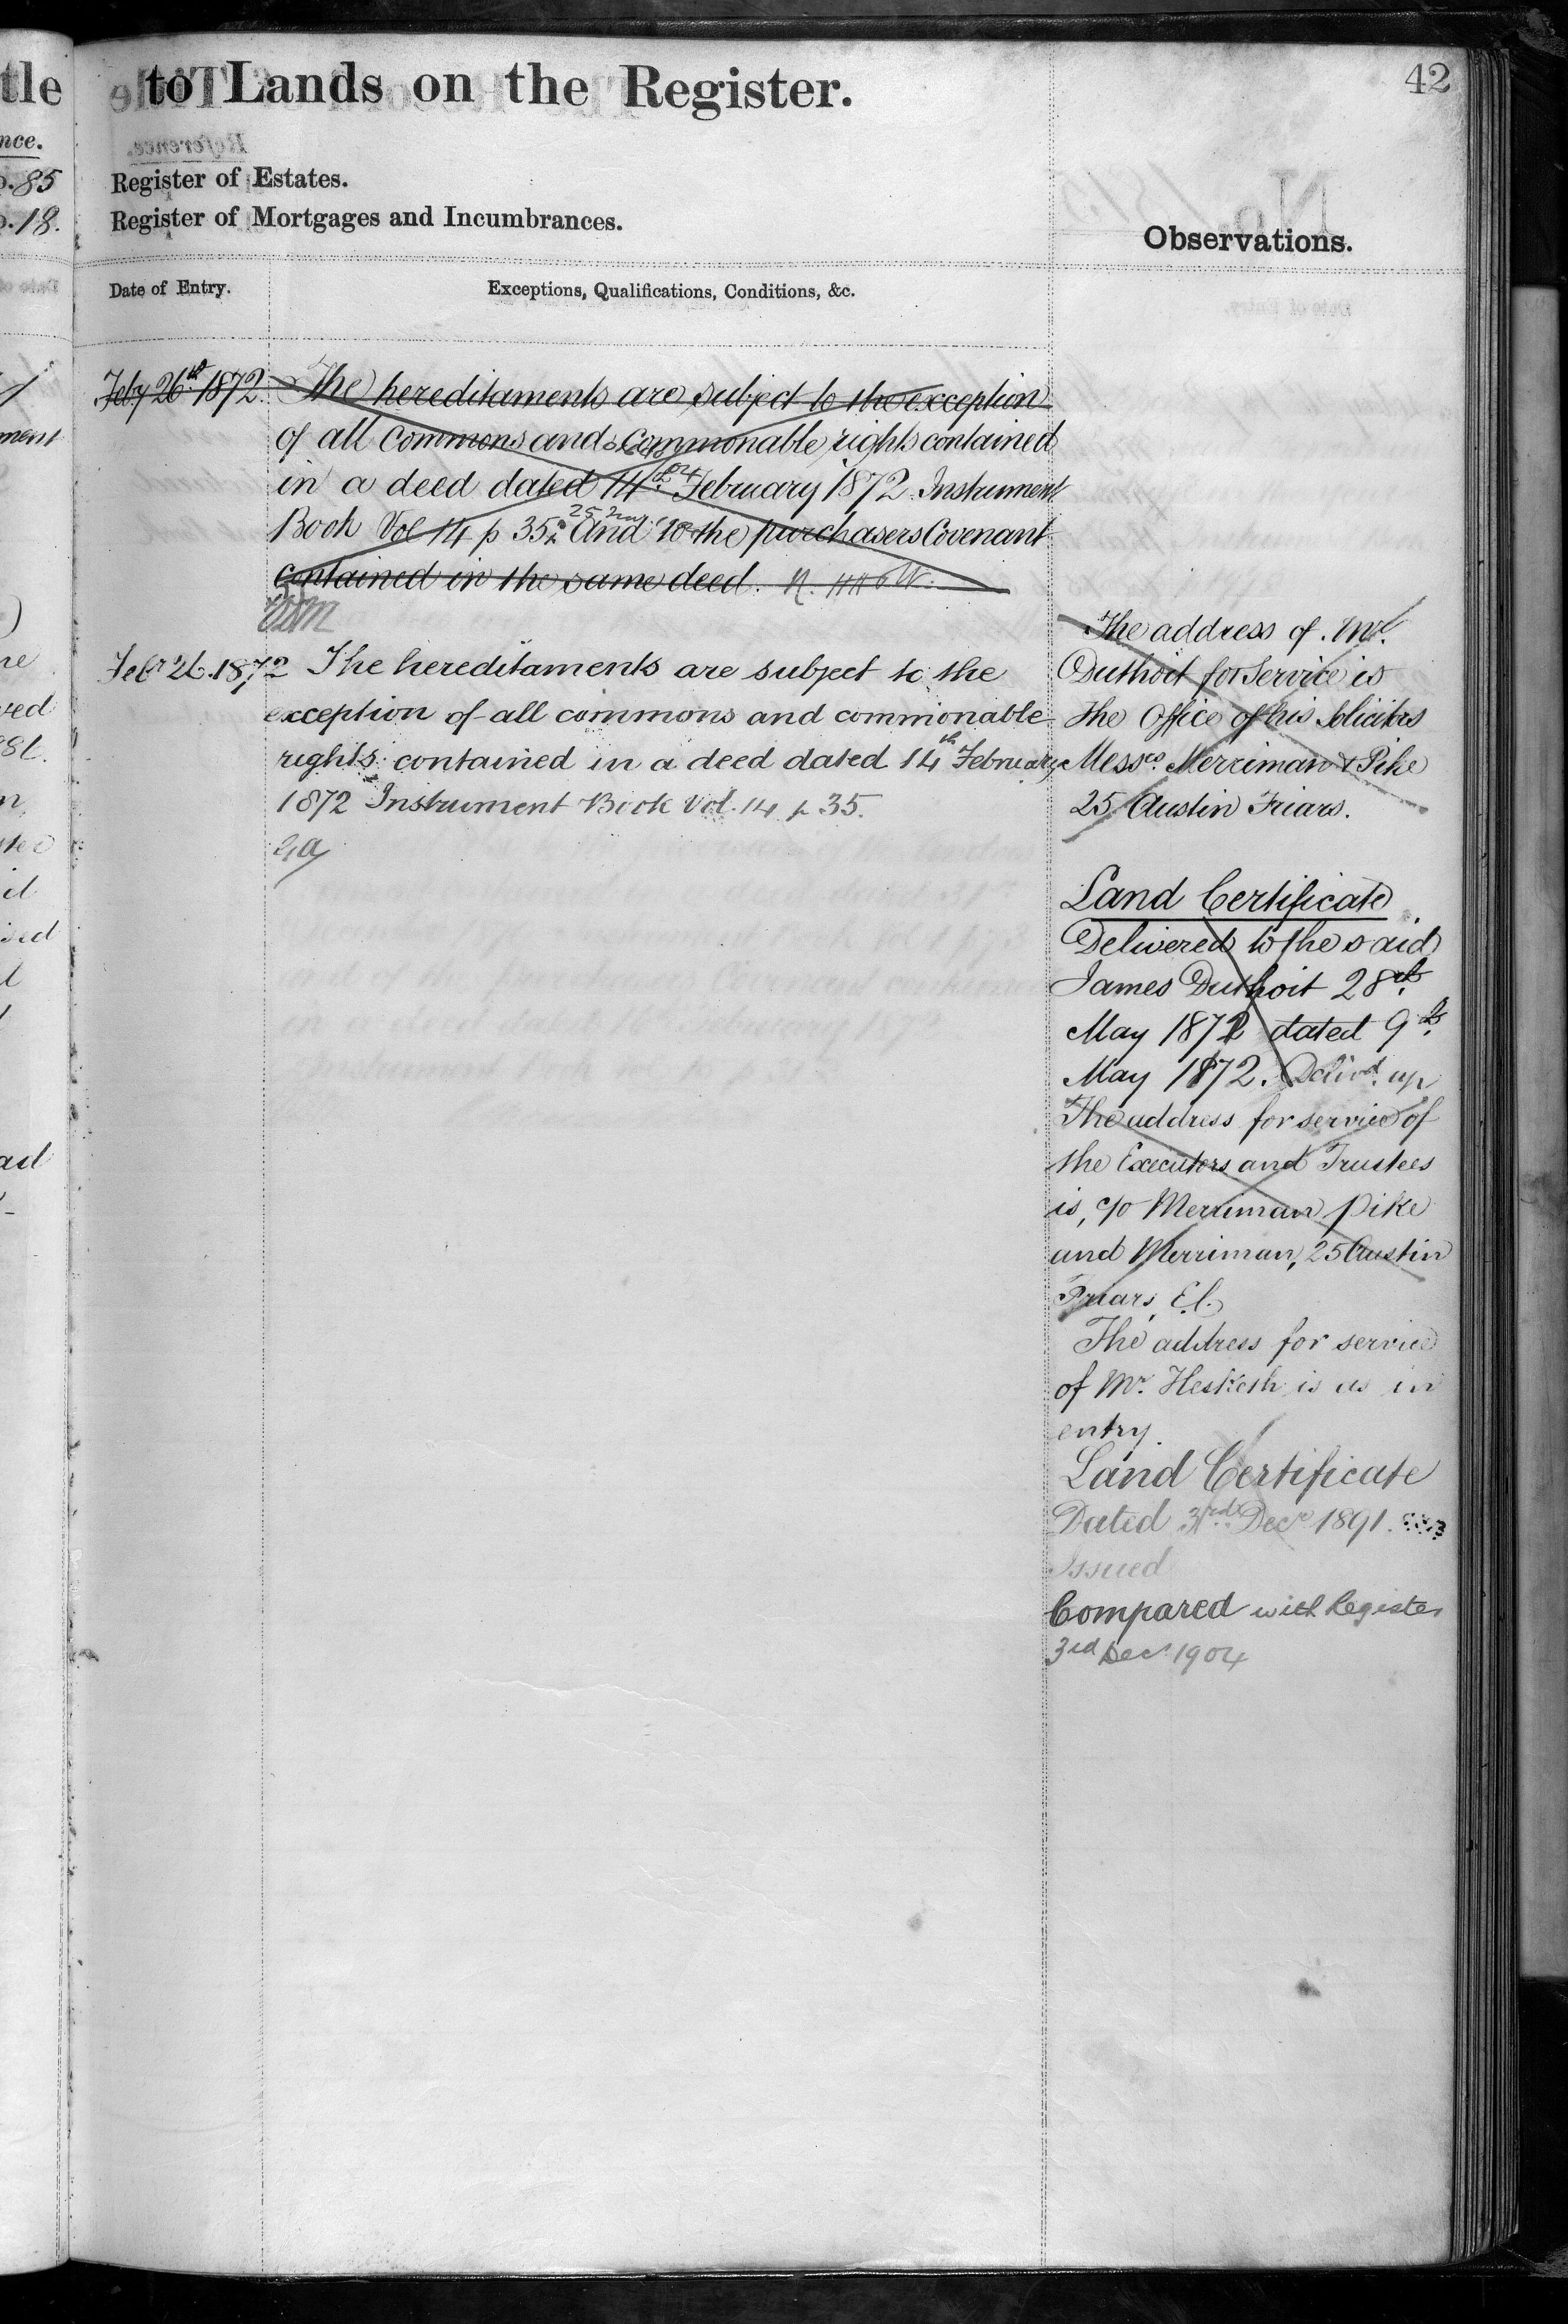 tle
to Lands on the Register.
42
nce.
85
18.
Register of Estates.
Register of Mortgages and Incumbrances.
Observations.
Date of Entry.
Exceptions, Qualifications, Conditions, &c.
Feby 26th 1872.
The hereditaments are subject to the exception
of all Commons and Commonable rights contained
in a deed dated 14th February 1872 Instrument
Book Vol 14 p 35 And to the purchasers Covenant
contained in the same deed.
Feby 26. 1872
The hereditaments are subject to the
exception of all commons and commonable
rights contained in a deed dated 14th February
1872 Instrument Book Vol. 14 p 35.
The address of Mr.
Duthoit for Service is
the Office of his Solicitors
Messrs. Merriman & Pike
25 Austin Friars.
Land Certificate
Delivered to the said
James Duthoit 28th
May 1872 dated 9th
May 1872. Delivd. up
The address for service of
the Executors and Trustees
is, c/o Merriman Pike
and Merriman, 25 Austin
Friars, E.C.
The address for service
of Mr. Hesketh is as in
entry.
Land Certificate
Dated 3rd Decr 1891.
Issued
Compared with Register
3rd Decr 1904